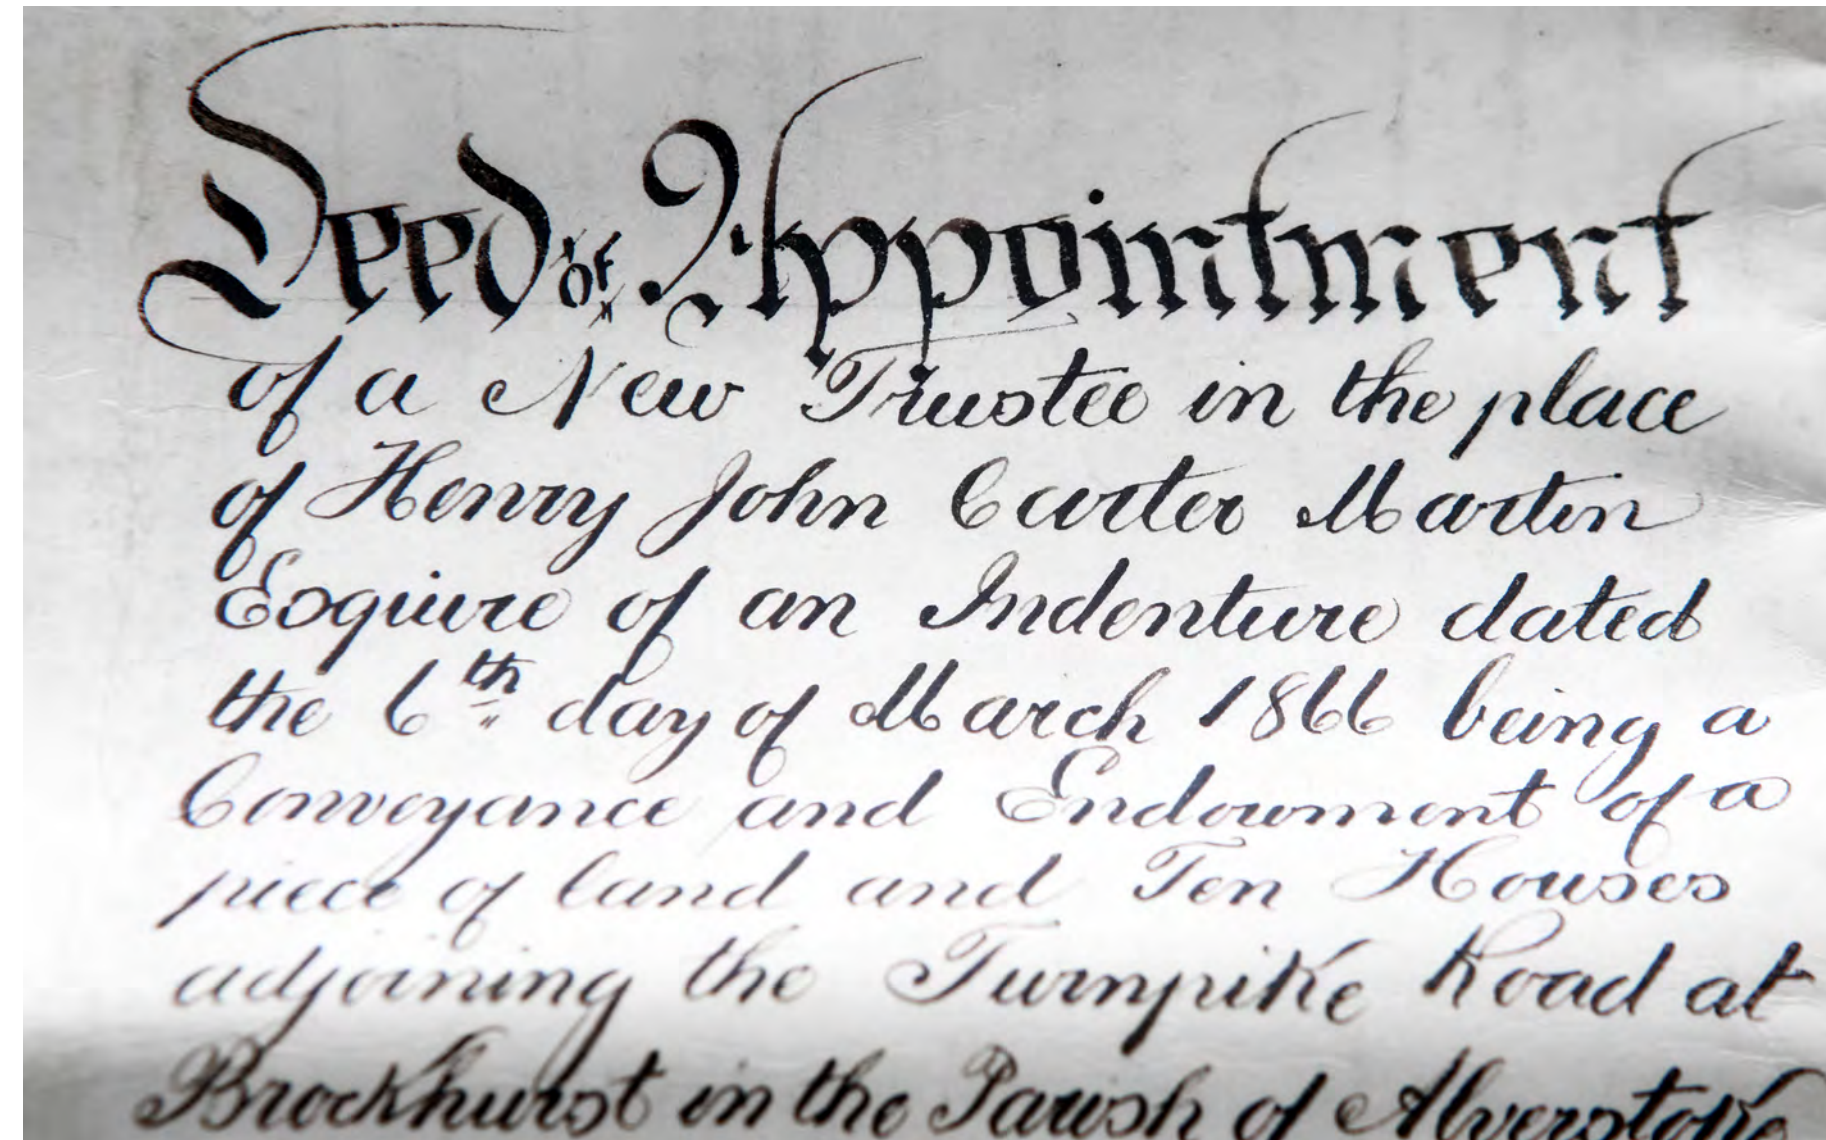 Deed of Appointment
of a New Trustee in the place
of Henry John Carter Martin
Esquire of an Indenture dated
the 6th day of March 1866 being a
Conveyance and Endowment of a
piece of land and Ten Houses
adjoining the Turnpike Road at
Brockhurst in the Parish of Alverstoke